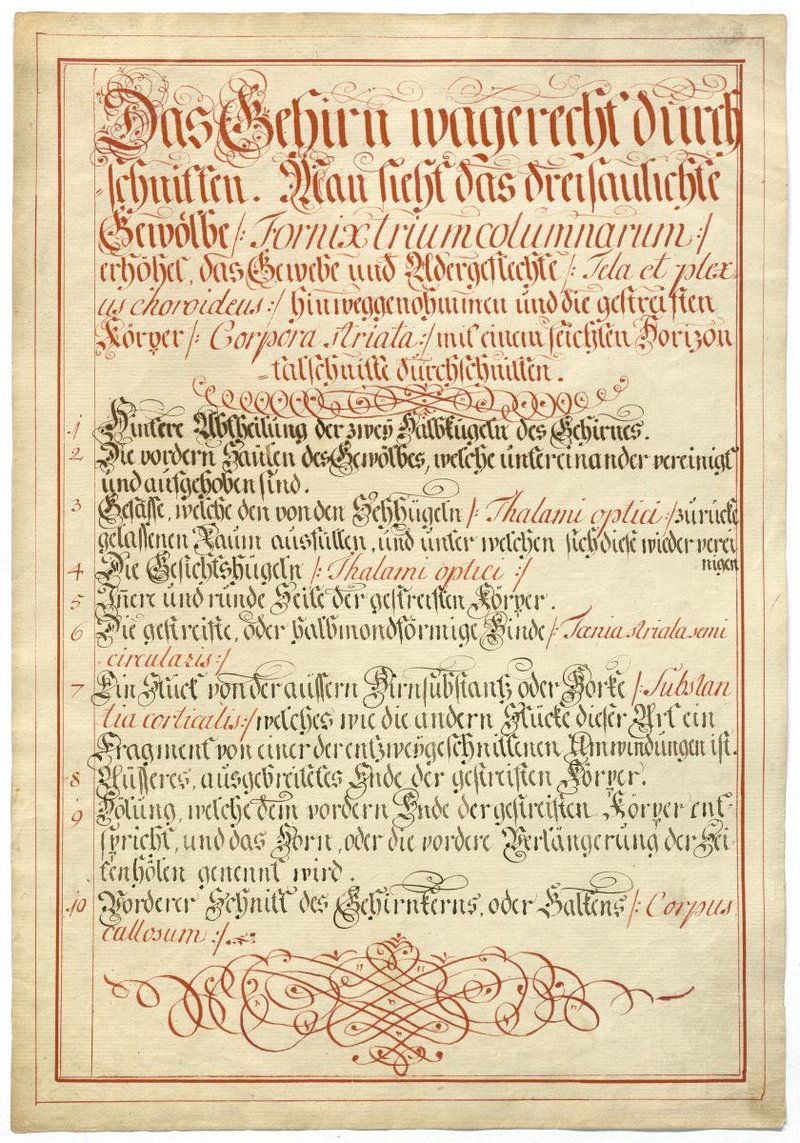 Das Gehirn wagerecht durch
-schnitten. Man sieht das dreisäulichte
Gewölbe /: Fornix trium columnarum :/
erhöhet, das Gewebe und Adergeflechte /: Tela et plex-
us choroideus :/ hinweggenohmmen und die gestreiften
Körper /: Corpora striata :/ mit einem seichten Horizon
-talschnitte durchschnitten.
1 Hintere Abtheilung der zwey Halbkugeln des Gehirnes.
2 Die vordern Säulen des Gewölbes, welche untereinander vereinigt
und aufgehoben sind.
3 Gefässe, welche den von den Sehhügeln /: Thalami optici :/ zurücke
gelassenen Raum ausfüllen, und unter welchen sich diese wieder verei
nigen
4 Die Gesichtshügeln /: Thalami optici :/
5 Iñere und runde Seite der gestreiften Körper.
6 Die gestreifte, oder halbmondförmige Binde /: Tænia striata semi
-circularis :/
7 Ein Stück von der äussern Hirnsubstantz oder Borke /: Substan
tia corticalis :/ welches wie die andern Stücke dieser Art ein
Fragment von einer der entzweygeschnittenen Umwindungen ist.
8 Äüsseres, ausgebreitetes Ende der gestreiften Körper.
9 Hölung, welche dem vordern Ende der gestreiften Körper ent-
spricht, und das Horn, oder die vordere Verlängerung der Sei-
tenhölen genennt wird.
10 Vorderer Schnitt des Gehirnkerns, oder Balkens /: Corpus
callosum :/